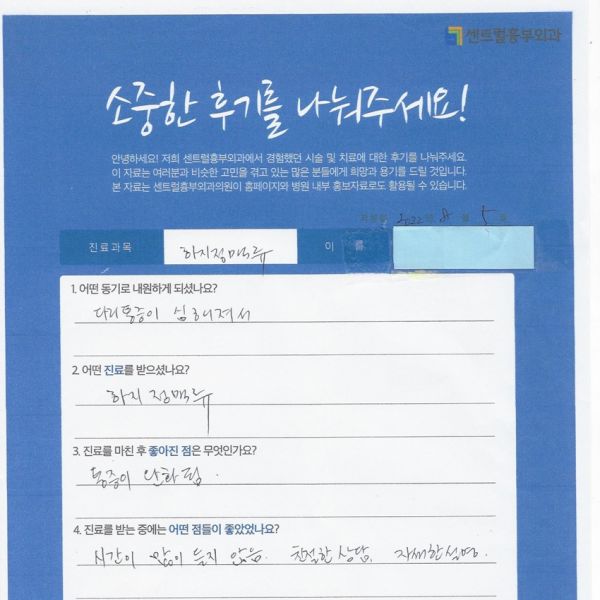 센트럴흉부외과
소중한 후기를 나눠주세요!
안녕하세요! 저희 센트럴흉부외과에서 경험했던 시술 및 치료에 대한 후기를 나눠주세요.
이 자료는 여러분과 비슷한 고민을 겪고 있는 많은 분들에게 희망과 용기를 드릴 것입니다.
본 자료는 센트럴흉부외과의원이 홈페이지와 병원 내부 홍보자료로도 활용될 수 있습니다.
2022년 8월 5일
진료과목 하지정맥류 이 름
1. 어떤 동기로 내원하게 되셨나요?
다리통증이 심해져서
2. 어떤 진료를 받으셨나요?
하지 정맥류
3. 진료를 마친 후 좋아진 점은 무엇인가요?
통증이 완화됨.
4. 진료를 받는 중에는 어떤 점들이 좋았었나요?
시간이 많이 들지 않음. 친절한 상담, 자세한 설명.